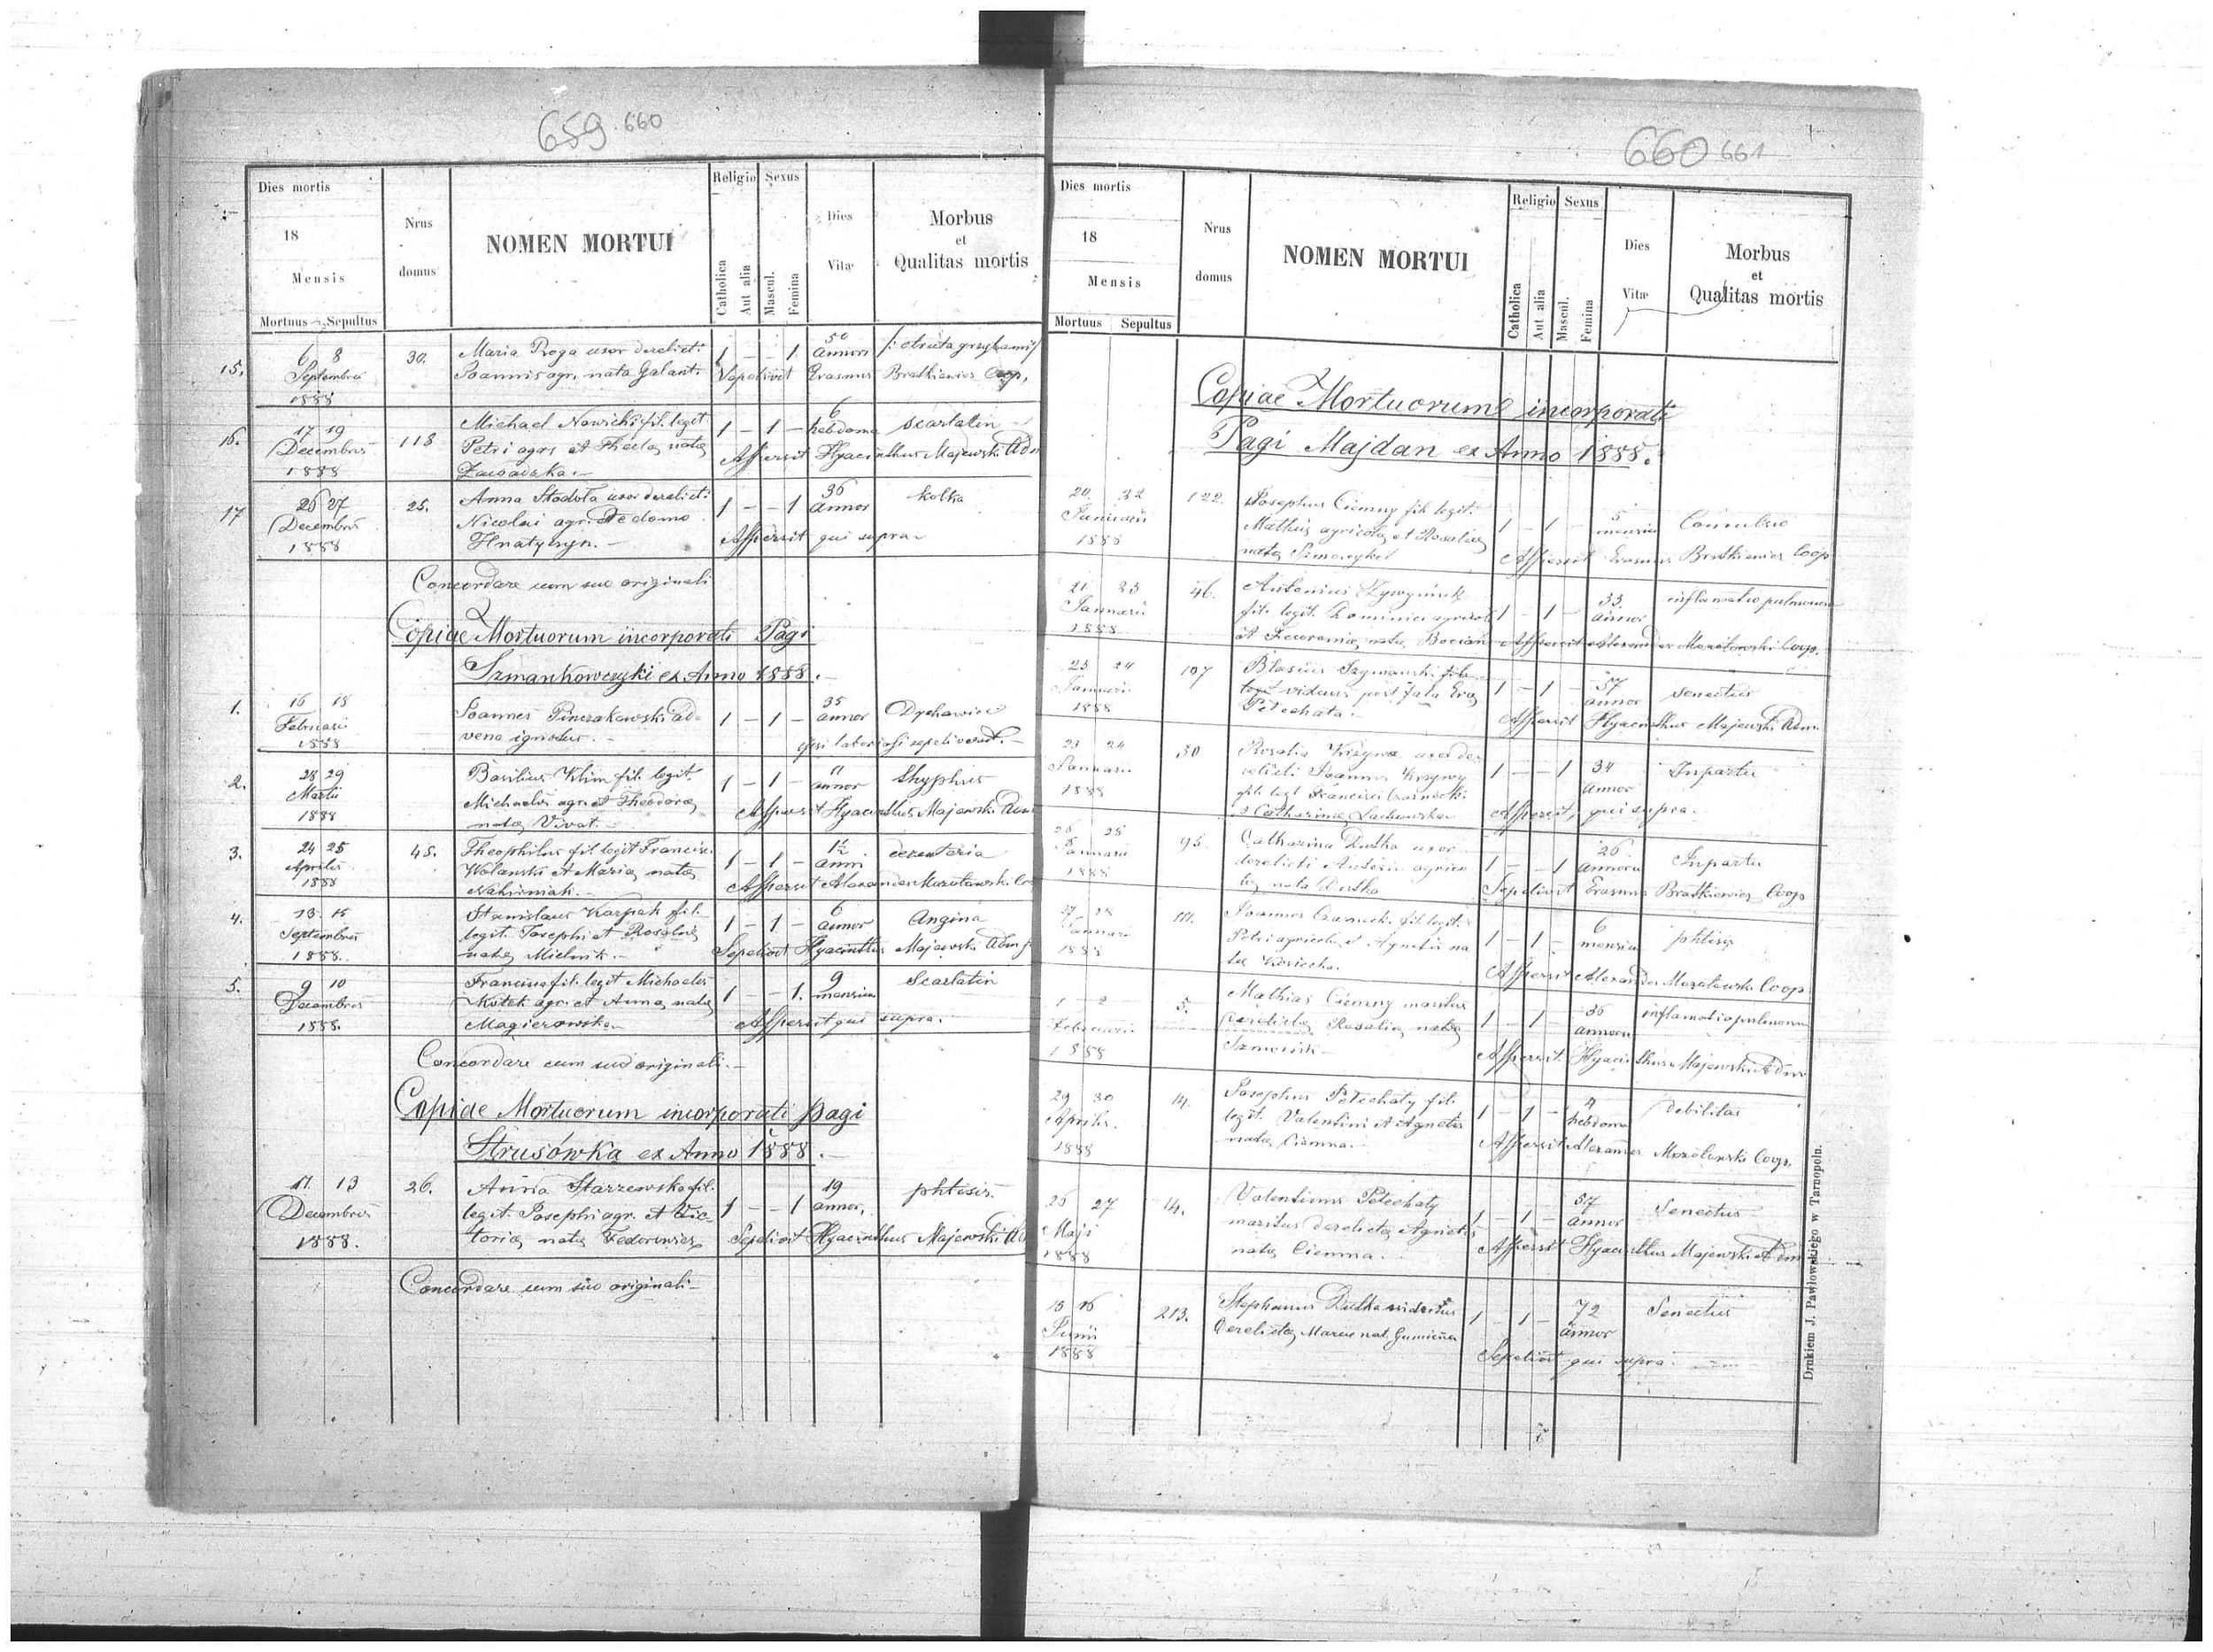 659 660
Dies mortis
18
Mensis
Mortuus Sepultus
Nrus
domus
NOMEN MORTUI
Religio Sexus
Catholica
Aut alia
Mascul.
Femina
Dies
Vitæ
Morbus
et
Qualitas mortis
15. 6 8 30. Maria Proga uxor derelicti 1 – – 1. 50
Septembris Joannis agr. nata Galant. annor
1888 Erasmus Bratkiewicz Coop.
16. 17 19 118 Michael Nowicki fil. legit. 1 – 1 – 6 scarlatin
Decembris Petri agr. et Thecla nata hebdoma
1888 Zawadzka. – Aspersit Hyacinthus Majewski Adm
17 26 27 25. Anna Stodoła uxor derelicti 1 – – 1 36 kolka
Decembris Nicolai agr. De domo annor
1888 Hnatyszyn. – Aspersit qui supra –
Concordare cum suo originali
Copiae Mortuorum incorporati Pagi
Szmankowczyki ex Anno 1888. –
1. 16 18 Joannes Pinczakowski ad- 1 – 1 – 35 Dychawica
Februarii vena ignotus. – annor
1888 sepelierunt. –
2. 28 29 Basilius Klim fil. legit. 1 – 1 – 11 thyphus
Martii Michaelis agr. et Theodora annor
1888 nata Vivat. – Aspersit Hyacinthus Majewski Adm
3. 24 25 45. Theophilus fil legit Francisc. 1 – 1 – 1½
Aprilis Wolanski et Maria nata anni
1888 Aspersit Alexander
4. 13 15 Stanislaus Karpak fil. 1 – 1 – 6 Angina
Septembris legit. Josephi et Rosalia annor
1888. nata Mielnik. – Sepelivit Hyacinthus Majewski Adm
5. 9 10 Francisca fil. legit Michaelis 1 – – 1. 9 Scarlatin
Decembris Kotek agr. et Anna nata mensium
1888. Magierowska – Aspersit qui supra.
Concordare cum suo originali. –
Copiae Mortuorum incorporati pagi
Strusówka ex Anno 1888. –
11 13 26. Anna Starzewska fil. 1 – – 1 19 phtisis.
Decembris legit. Josephi agr. et Vic- annor,
1888. toria nata Fedorowicz Sepelivit Hyacinthus Majewski
Concordare cum suo originali –
660 661
Dies mortis
18
Mensis
Mortuus Sepultus
Nrus
domus
NOMEN MORTUI
Religio Sexus
Catholica
Aut alia
Mascul.
Femina
Dies
Vitæ
Morbus
et
Qualitas mortis
Copiae Mortuorum incorporati
Pagi Majdan ex Anno 1888.
122. Josephus Ciemny fil. legit. 1 – 1 – 5
Januarii Mathia agricola et Rosalia mensium
1888 nata Aspersit Erasmus Bratkiewicz Coop
21 23 46. Antonius 1 – 1 – 33 inflamatio pulmonum
Januarii fil. legit. Dominici annor
1888 nata Bocian Aspersit Alexander Coop.
23 24 107 Blasius Szymanski 1 – 1 – 57 senectus
Januarii viduus post fata Eva annor
1888 Petechata. – Aspersit Hyacinthus Majewski Adm.
23 24 30 Rosalia Krzywa uxor de- 1 – – 1 34 In partu
Januarii relicti Joannis Krzywy annor
1888 fil. legit Francisci Czarnecki
Catharina Lachowska Aspersit, qui supra.
26 28 95. Catharina Dutka uxor 1 – – 1 26 In partu
Januarii derelicti agrico annoru
1888 la nata Dutka Sepelivit Erasmus Bratkiewicz Coop
27 28 Joannes Czarnecki fil. legit. 1 – 1 – 6 phtisis
Januarii Petri agricola et Agnetis na mensium
1888 ta Aspersit Alexander Coop.
1 2 5. Mathias Ciemny maritus 1 – 1 – 36 inflamatio pulmonum
Februarii derelicta Rosalia nata annoru
1888 Aspersit. Hyacinthus Majewski Adm
29 30 14. Josephus Petechaty fil. 1 – 1 – 4 debilitas
Aprilis. legit. Valentini et Agnetis hebdoma
1888 nata Ciemna. Aspersit Alexander Coop.
26 27 14. Valentinus Petechaty 1 – 1 – 57 Senectus
Maji maritus derelicta Agnetis annor
1888 nata Ciemna. – Aspersit Hyacinthus Majewski Adm
15 16 213. Stephanus Dutka 1 – 1 – 72 Senectus
Junii derelicta Mariae nat. annor
1888 Sepelivit qui supra.
Drukiem J. Pawłowskiego w Tarnopoln.